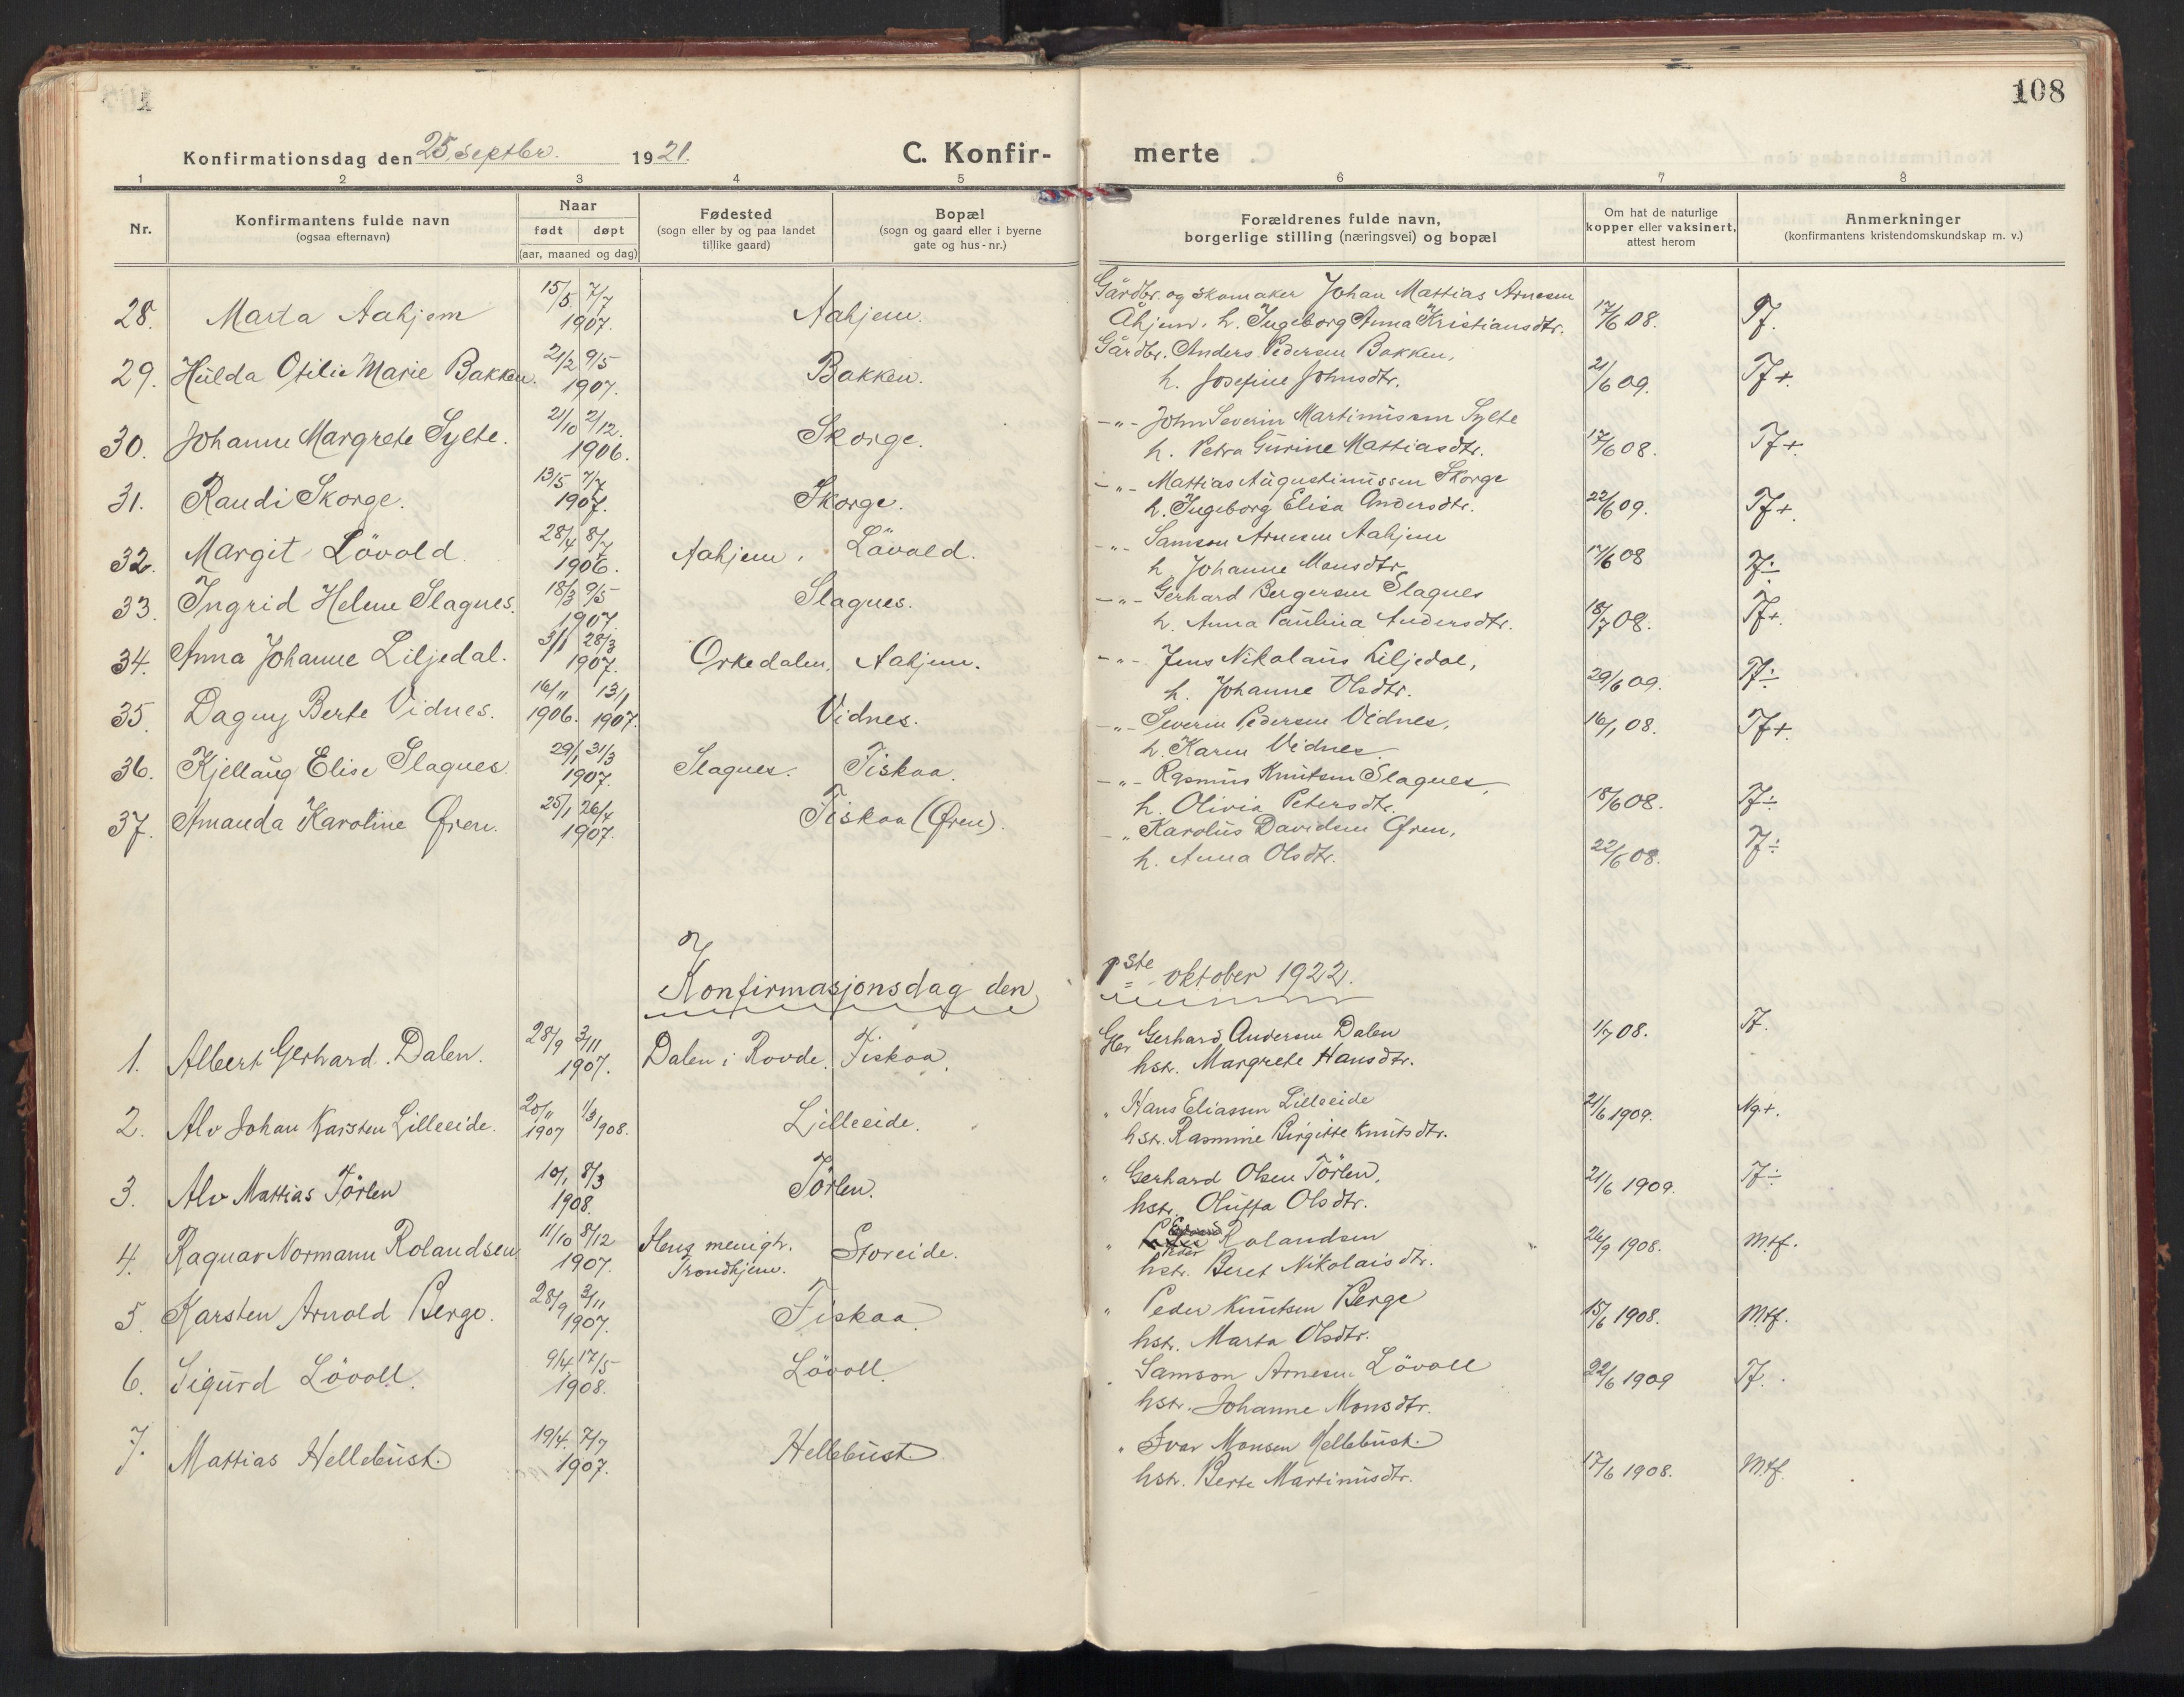 108
Konfirmationsdag den 25. Septbr. 1921.
C. Konfir-merte
1 2 3 4 5 6 7 8
Nr.
Konfirmantens fulde navn
(ogsaa efternavn)
Naar
født døpt
(aar, maaned og dag)
Fødested
(sogn eller by og paa landet
tillike gaard)
Bopæl
(sogn og gaard eller i byerne
gate og hus-nr.)
Forældrenes fulde navn,
borgerlige stilling (næringsvei) og bopæl
Om hat de naturlige
kopper eller vaksinert,
attest herom
Anmerkninger
(konfirmantens kristendomskundskap m. v.)
28. Marta Aahjem 15/5 7/7 1907. Aahjem. Gårdbr. og skomaker Johan Mattias Arnesen
Åhjem. h. Ingeborg Anna Kristiansdtr. 17/6 08. Tf.
29. Hulda Otilie Marie Bakken. 21/2 9/5 1907. Bakken. Gårdbr. Anders Pedersen Bakken,
h. Josefine Johnsdtr. 21/6 09. Tf+.
30. Johanne Margrete Sylte. 21/10 2/12. 1906. Skorge. -"- John Severin Martinussen Sylte
h. Petra Gurine Mattiasdtr. 17/6 08. Tf+.
31. Raudi Skorge. 13/5 7/7 1907. Skorge. -"- Mattias Augustinussen Skorge
h. Ingeborg Elisa Andersdtr. 22/6 09. Tf+.
32. Margit Lövold 28/4 8/7 1906. Aahjem. Lövold. -"- Samson Arnesen Aahjem
h. Johanne Monsdtr 17/6 08 Tf÷
33. Ingrid Helene Slagnes. 18/3 9/5 1907. Slagnes. -"- Gerhard Bergersen Slagnes
h. Anna Paulina Andersdtr. 18/7 08. Tf+.
34. Anna Johanne Liljedal. 3/1 28/3 1907. Orkedalen. Aahjem. -"- Jens Nikolaus Liljedal,
h. Johanne Olsdtr. 29/6 09. Tf÷
35. Dagny Berte Vidnes. 16/11 1906. 13/1 1907. Vidnes. -"- Severin Pedersen Vidnes,
h. Karen Vidnes. 16/1 08. Tf+.
36. Kjellaug Elise Slagnes. 29/1 31/3 1907. Slagnes. Fiskaa. -"- Rasmus Knutsen Slagnes,
h. Olivia Petersdtr. 18/6 08. Tf÷
37. Amanda Karoline Øren. 25/1 26/4 1907. Fiskaa (Øren). -"- Karolus Davidsen Øren,
h. Anna Olsdtr. 22/6 08. Tf÷
Konfirmasjonsdag den 1ste oktober 1922.
1. Albert Gerhard Dalen. 28/9 3/11 1907. Dalen i Rovde. Fiskaa. Gbr Gerhard Andersen Dalen
hstr. Margrete Hansdtr. 1/7 08. Tf.
2. Alv Johan Karsten Lilleeide. 20/11 1907 1/3 1908. Lilleeide. " Hans Eliassen Lilleeide
hstr. Rasmine Birgitte Knutsdtr. 21/6 1909. Ng+.
3. Alv Mattias Törlen 10/1 8/3 1908. Törlen. " Gerhard Olsen Törlen,
hstr. Oluffa Olsdtr. 21/6 1909. Tf÷
4. Ragnar Normann Rolandsen 11/10 8/12 1907. Ilens menigh. Trondhjem. Storeide. " Peder Rolandsen
hstr. Beret Nikolaisdtr. 26/9 1908. Mtf.
5. Karsten Arnold Berge. 28/9 3/11 1907. Fiskaa. " Peder Knutsen Berge
hstr. Marta Olsdtr. 15/6 1908. Mtf.
6. Sigurd Lövoll. 9/4 17/5 1908. Lövoll. " Samson Arnesen Lövoll
hstr. Johanne Monsdtr. 22/6 1909 Tf.
7. Mattias Hellebust. 19/4. 7/7 1907. Hellebust. " Ivar Monsen Hellebust.
hstr. Berte Martinusdtr. 17/6 1908. Mtf.